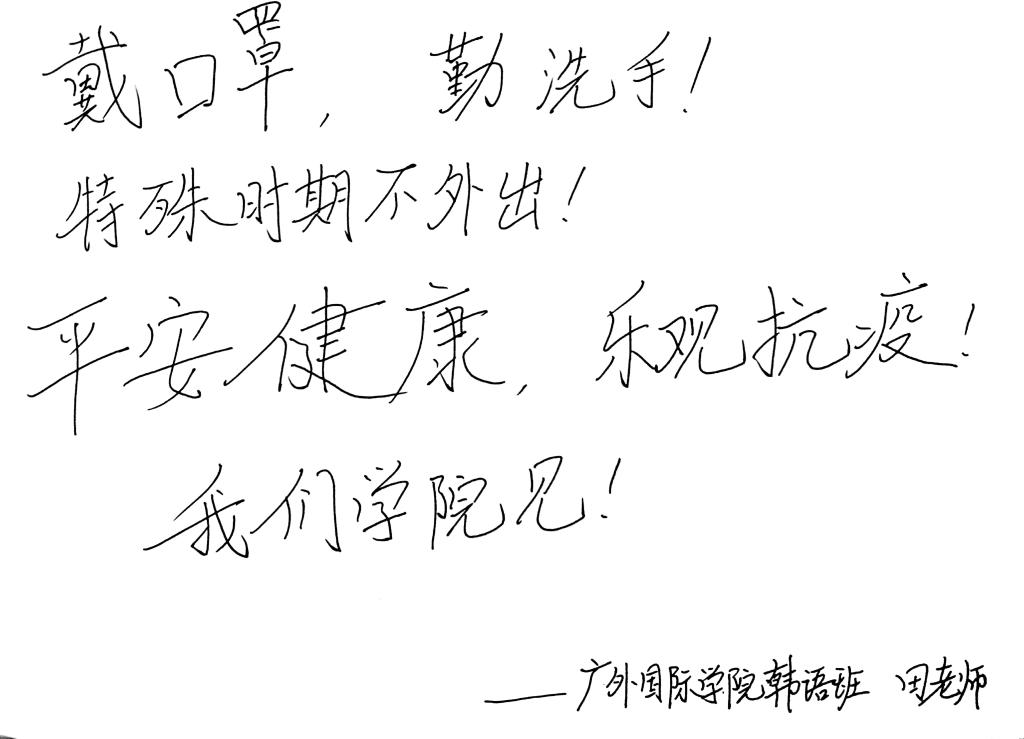 戴口罩，勤洗手！
特殊时期不外出！
平安健康，乐观抗疫！
我们学院见！
——广外国际学院韩语班 田老师